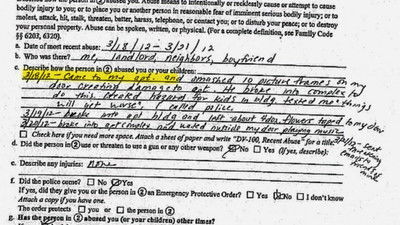 abused you. Abuse means to intentionally or recklessly cause or attempt to cause
bodily injury to you; or to place you or another person in reasonable fear of imminent serious bodily injury; or to
molest, attack, hit, stalk, threaten, batter, harass, telephone, or contact you; or to disturb your peace; or to destroy
your personal property. Abuse can be spoken, written, or physical. (For a complete definition, see Family Code
§§ 6203, 6320).
a. Date of most recent abuse: 3/18/12 - 3/21/12
b. Who was there? me, landlord, neighbors, boyfriend
c. Describe how the person in ② abused you or your children:
3/18/12 - Came to my apt. and smashed 10 picture frames on my
door creating damage to apt. He broke into complex to
do this, created hazard for kids in bldg. texted me "things
will get worse", I called police.
3/19/12 - broke into apt bldg and left about 40 flowers taped to my door
3/20/12 - broke into apt complex and waited outside my door playing music
3/21/12 - sent
emails to
friends of
mine
Check here if you need more space. Attach a sheet of paper and write "DV-100, Recent Abuse" for a title.
d. Did the person in ② use or threaten to use a gun or any other weapon? No Yes (If yes, describe):
e. Describe any injuries: none
f. Did the police come? No Yes
If yes, did they give you or the person in ② an Emergency Protective Order? Yes No I don't know
Attach a copy if you have one.
The order protects you or the person in ②
g. Has the person in ② abused you (or your children) other times?